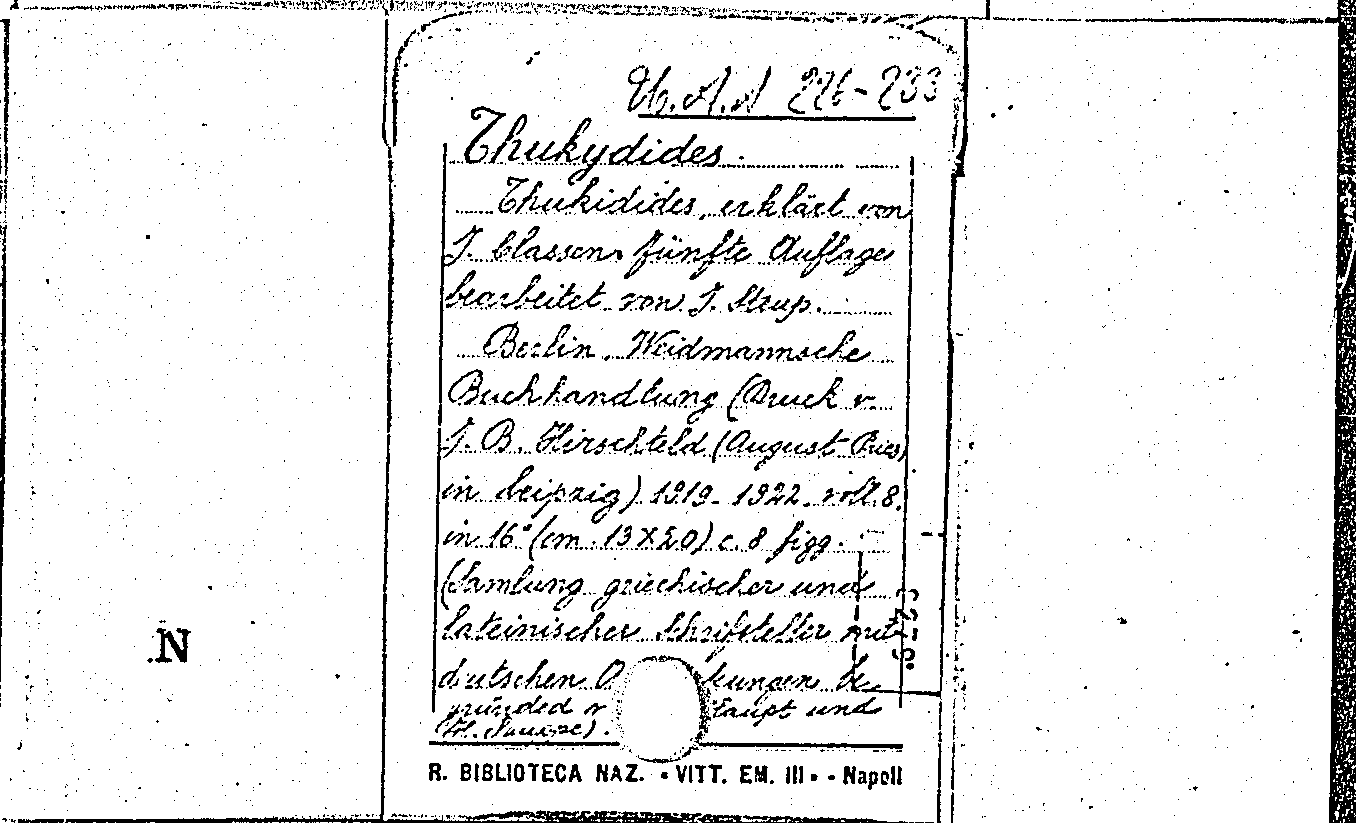 A. A 226-233
Thukydides.
Thukidides, erklärt von
J. Classen, fünfte Auflage
bearbeitet von J. Steup.
Berlin, Weidmannsche
Buchhandlung (Druck v.
J. B. Hirschfeld (August Pries)
in Leipzig) 1919-1922. voll. 8.
in 16° (cm. 13x20) c. 8 figg.
(Samlung griechischer und
lateinischer Schrifsteller mit
deutschen kungen be
gründed v Haupt und
Sauppe).
N
R. BIBLIOTECA NAZ. • VITT. EM. III • - Napoli